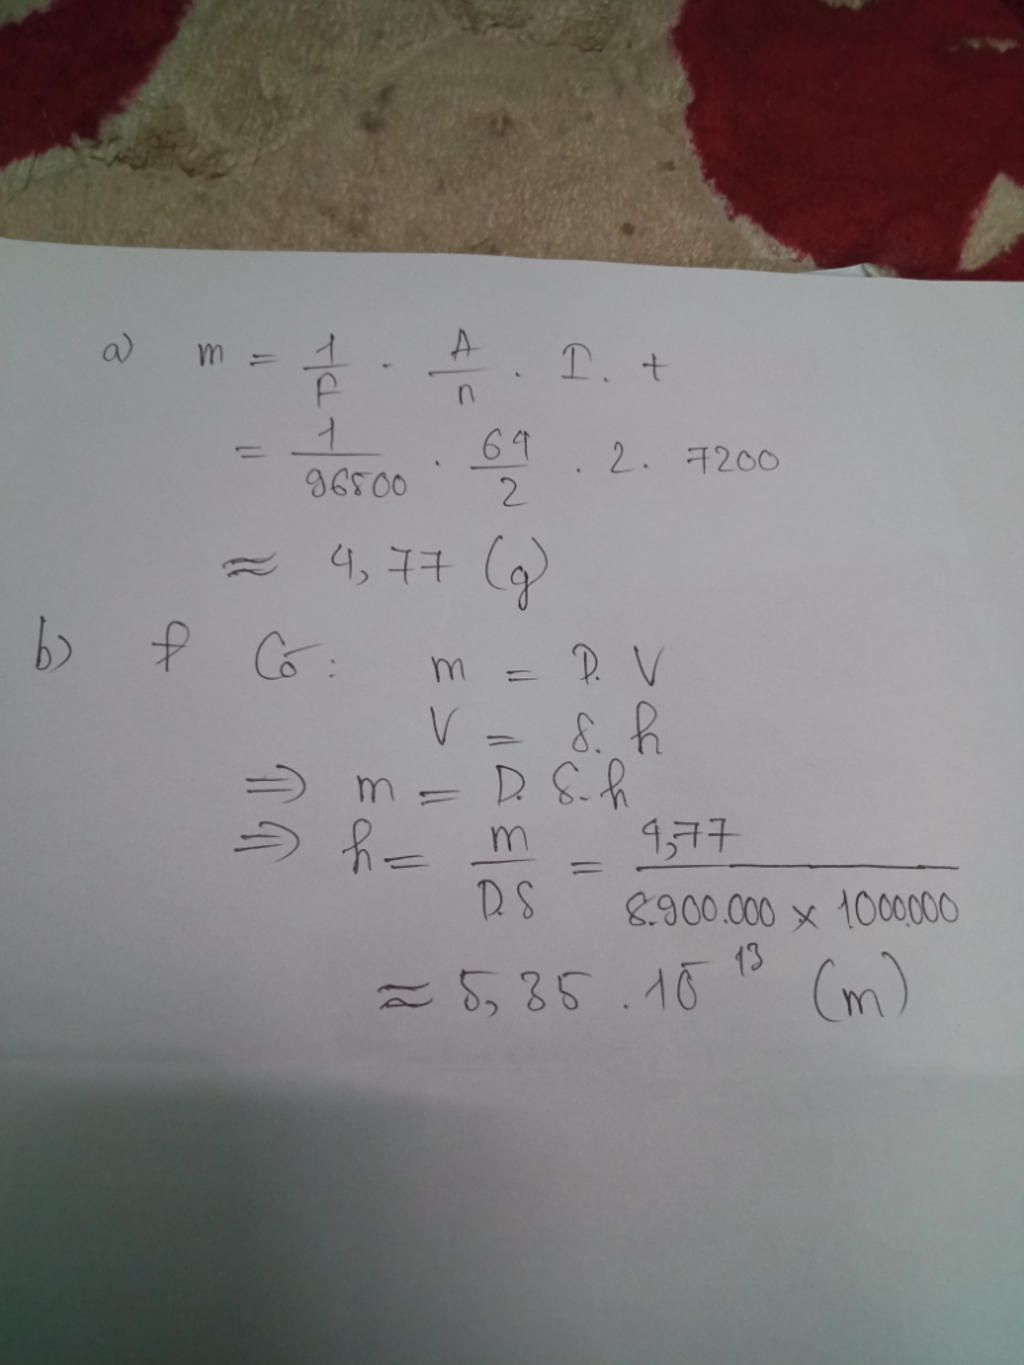 a) m = 1/F . A/n . I. t
= 1/96500 . 64/2 . 2. 7200
≈ 4,77 (g)
b) Có: m = D. V
V = S. h
=> m = D. S. h
=> h = m/D.S = 4,77/8.900.000 × 1.000.000
≈ 5,35 . 10⁻¹³ (m)